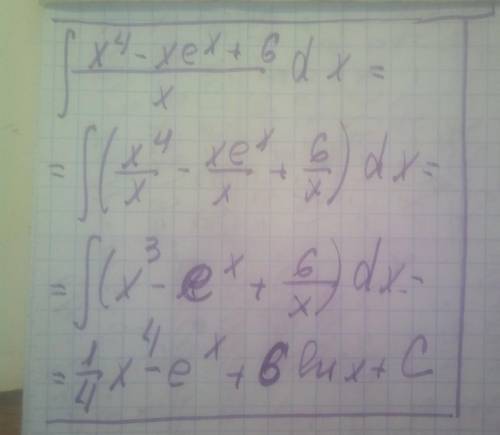 ∫ (x⁴ - xeˣ + 6)/x dx =
= ∫ (x⁴/x - xeˣ/x + 6/x) dx =
= ∫ (x³ - eˣ + 6/x) dx =
= 1/4 x⁴ - eˣ + 6 ln x + C